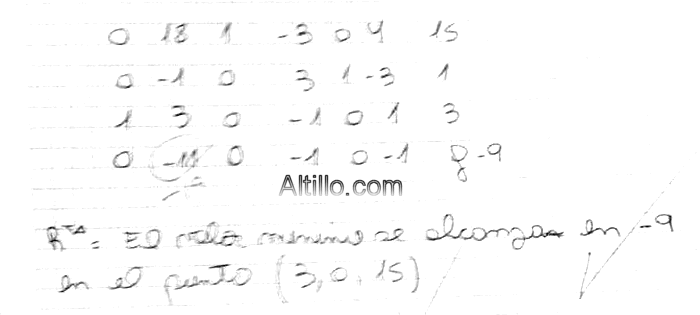 0 18 1 -3 0 4 15
0 -1 0 3 1 -3 1
1 3 0 -1 0 1 3
0 -11 0 -1 0 -1 g-9
Altillo.com
Rta = El valor minimo se alcanza en -9
en el punto (3, 0, 15)